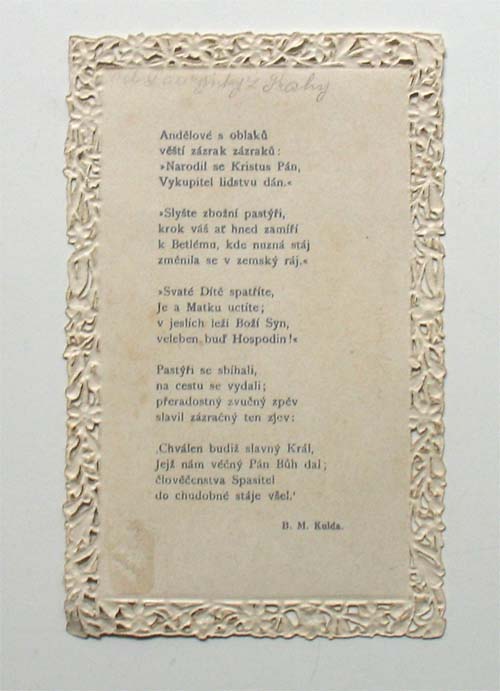 z Prahy
Andělové s oblaků
věští zázrak zázraků:
»Narodil se Kristus Pán,
Vykupitel lidstvu dán.«
»Slyšte zbožní pastýři,
krok váš ať hned zamíří
k Betlému, kde nuzná stáj
změnila se v zemský ráj.«
»Svaté Dítě spatříte,
Je a Matku uctíte;
v jeslích leží Boží Syn,
veleben buď Hospodin!«
Pastýři se sbíhali,
na cestu se vydali;
přeradostný zvučný zpěv
slavil zázračný ten zjev:
‚Chválen budiž slavný Král,
Jejž nám věčný Pán Bůh dal;
člověčenstva Spasitel
do chudobné stáje všel.‘
B. M. Kulda.